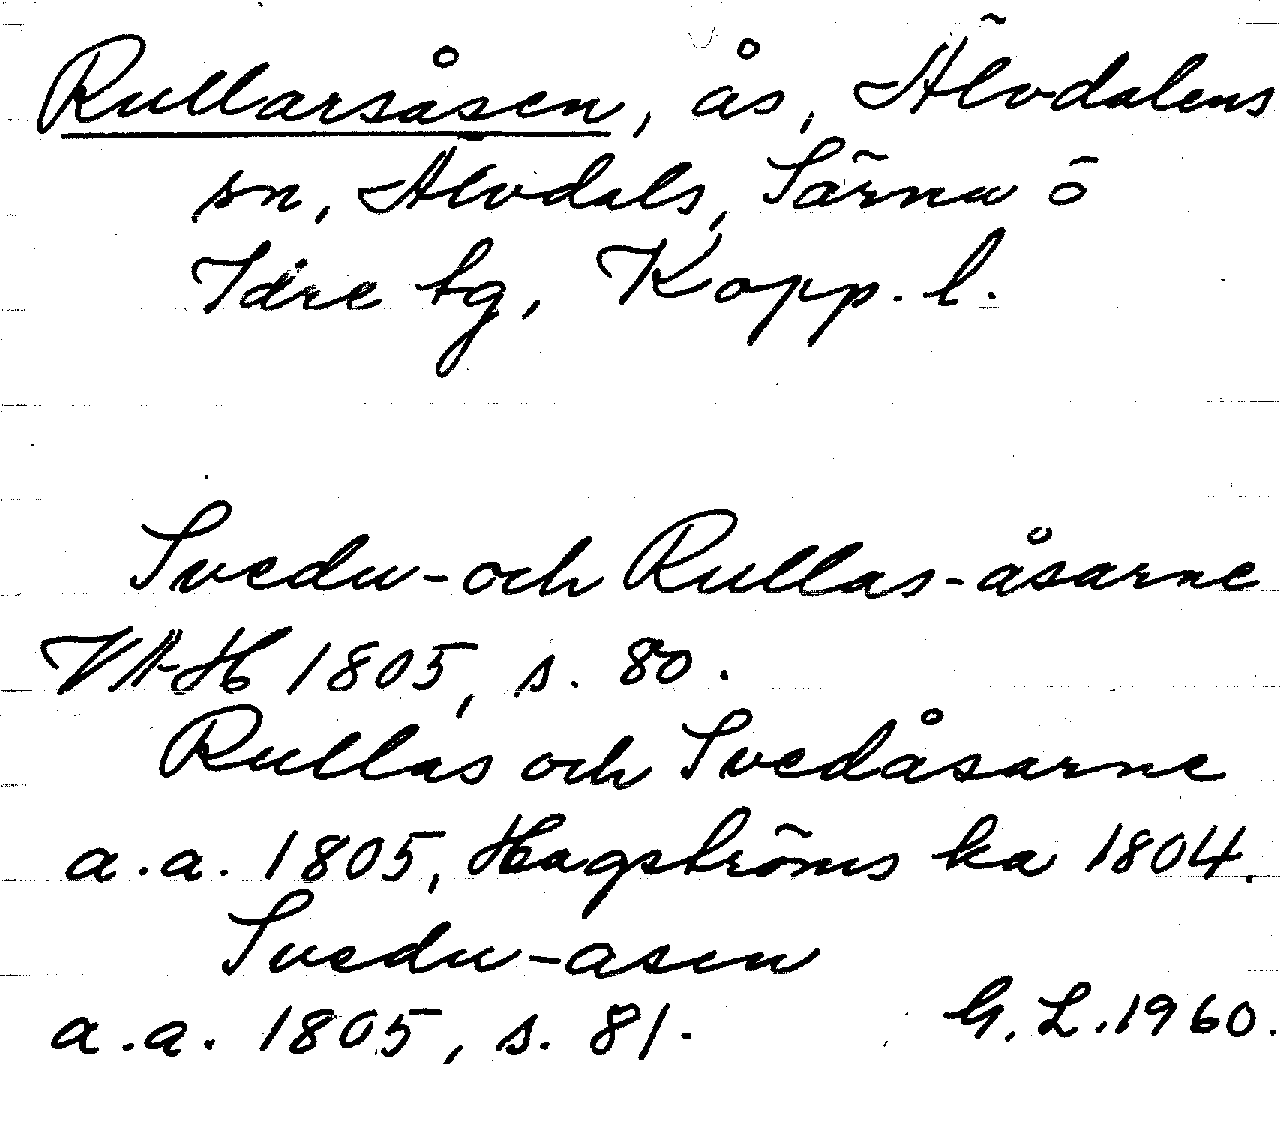 Rullarsåsen, ås, Älvdalens
sn, Älvdals, Särna o
Idre tg, Kopp. l.
Svedu-och Rullas-åsarne
VAH 1805, s. 80.
Rullas och Svedåsarne
a.a. 1805, Hagströms ka 1804.
Svedu-asen
a.a. 1805, s. 81. G. L. 1960.